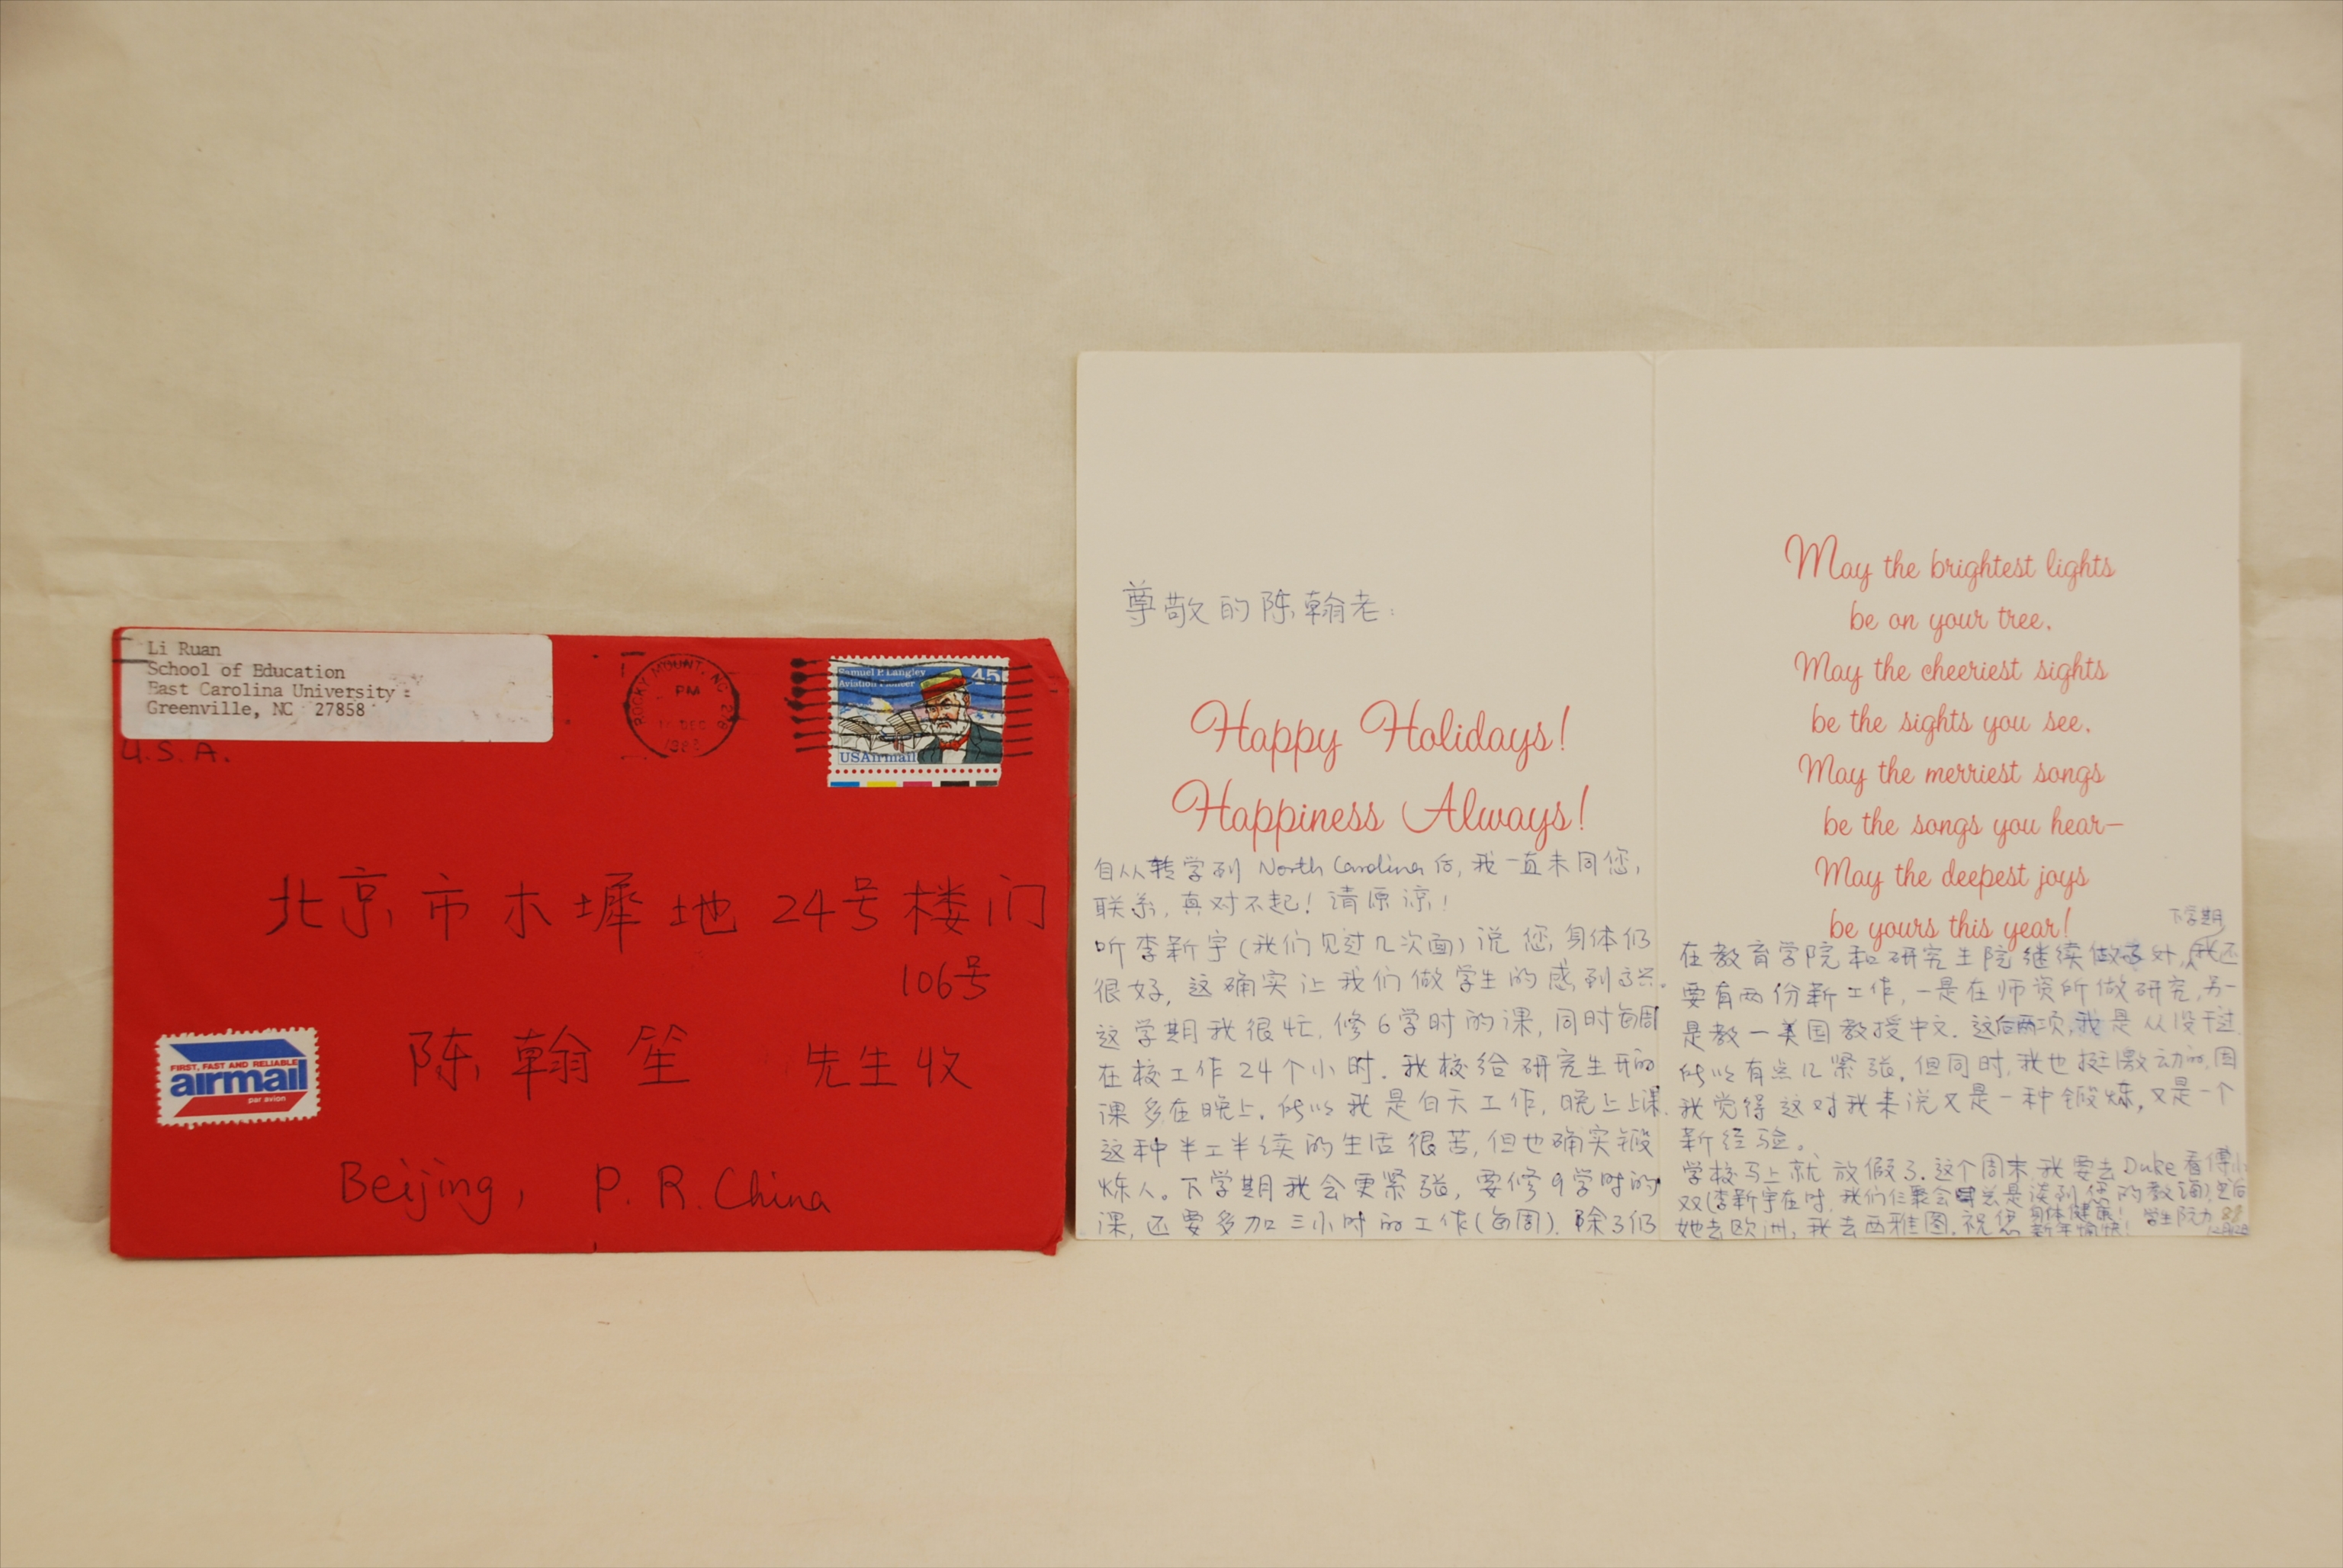 Li Ruan
School of Education
East Carolina University
Greenville, NC 27858
U.S.A.
ROCKY MOUNT, NC 278
PM
DEC
Samuel P. Langley
Aviation Pioneer
45
USAirmail
北京市木墀地24号楼门
106号
陈翰笙 先生收
Beijing, P. R. China
FIRST, FAST AND RELIABLE
airmail
par avion
尊敬的陈翰老:
Happy Holidays!
Happiness Always!
自从转学到 North Carolina 后, 我一直未同您,
联系, 真对不起! 请原谅!
听李新宇(我们见过几次面)说您, 身体仍
很好, 这确实让我们做学生的感到高兴.
这学期我很忙, 修6学时的课, 同时每周
在校工作24个小时. 我校给研究生开的
课多在晚上. 所以我是白天工作, 晚上上课.
这种半工半读的生活很苦, 但也确实锻
炼人。下学期我会更紧张, 要修9学时的
课, 还要多加三小时的工作(每周). 除了仍
May the brightest lights
be on your tree.
May the cheeriest sights
be the sights you see.
May the merriest songs
be the songs you hear—
May the deepest joys
be yours this year!
下学期
在教育学院和研究生院继续做 外, 我还
要有两份新工作, 一是在师资所做研究, 另一
是教一美国教授中文. 这后两项, 我是从没干过,
所以有点儿紧张. 但同时, 我也挺激动的, 因
我觉得这对我来说又是一种锻炼, 又是一个
新经验。
学校马上就放假了. 这个周末, 我要去 Duke 看傅小
双(李新宇在时, 我们 聚会 总是谈到您的教诲).
她去欧洲, 我去西雅图. 祝您 身体健康!
新年愉快!
学生阮力